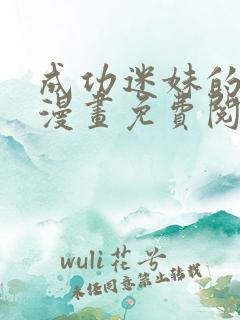 成功迷妹的
漫畫免費閱
wuli花兮
未经同意禁止转载